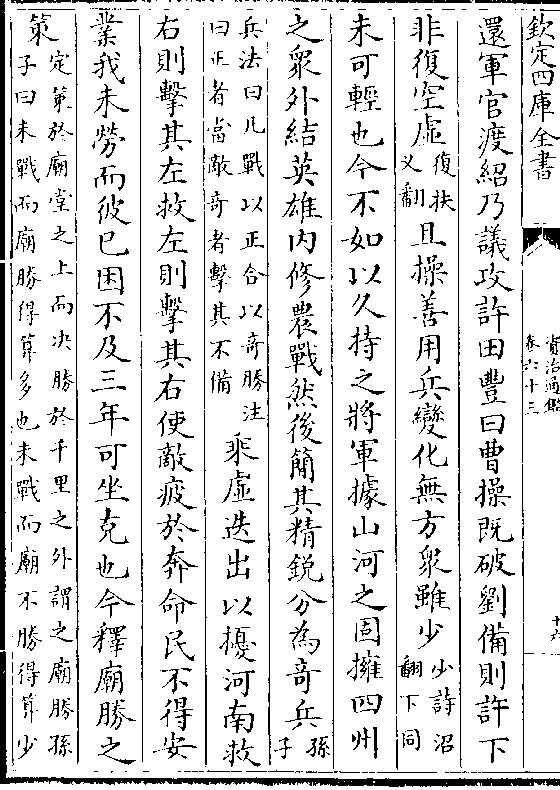 欽定四庫全書
資治通鑑
卷六十三
十六
還軍官渡紹乃議攻許田豐曰曹操既破劉備則許下
非復空虛復扶又翻且操善用兵變化無方衆雖少少詩沼翻下同
未可輕也今不如以久持之將軍據山河之固擁四州
之衆外結英雄內修農戰然後簡其精銳分為竒兵孫子
兵法曰凡戰以正合以竒勝注曰正者當敵竒者擊其不備乘虛迭出以擾河南救
右則擊其左救左則擊其右使敵疲於奔命民不得安
業我未勞而彼已困不及三年可坐克也今釋廟勝之
策定策於廟堂之上而決勝於千里之外謂之廟勝孫子曰未戰而廟勝得算多也未戰而廟不勝得算少